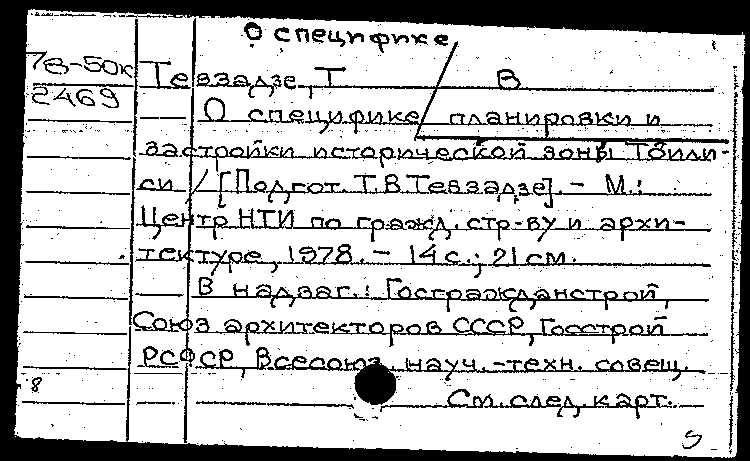 О специфике
7в-50к
2469
Тевзадзе, Т В
О специфике планировки и
застройки исторической зоны Тбили-
си / [Подгот. Т.В.Тевзадзе]. – М.:
Центр НТИ по гражд. стр-ву и архи-
тектуре, 1978. – 14 с.; 21 см.
В надзаг.: Госгражданстрой,
Союз архитекторов СССР, Госстрой
РСФСР, Всесоюз. науч.-техн. совещ.
8
См. след. карт.